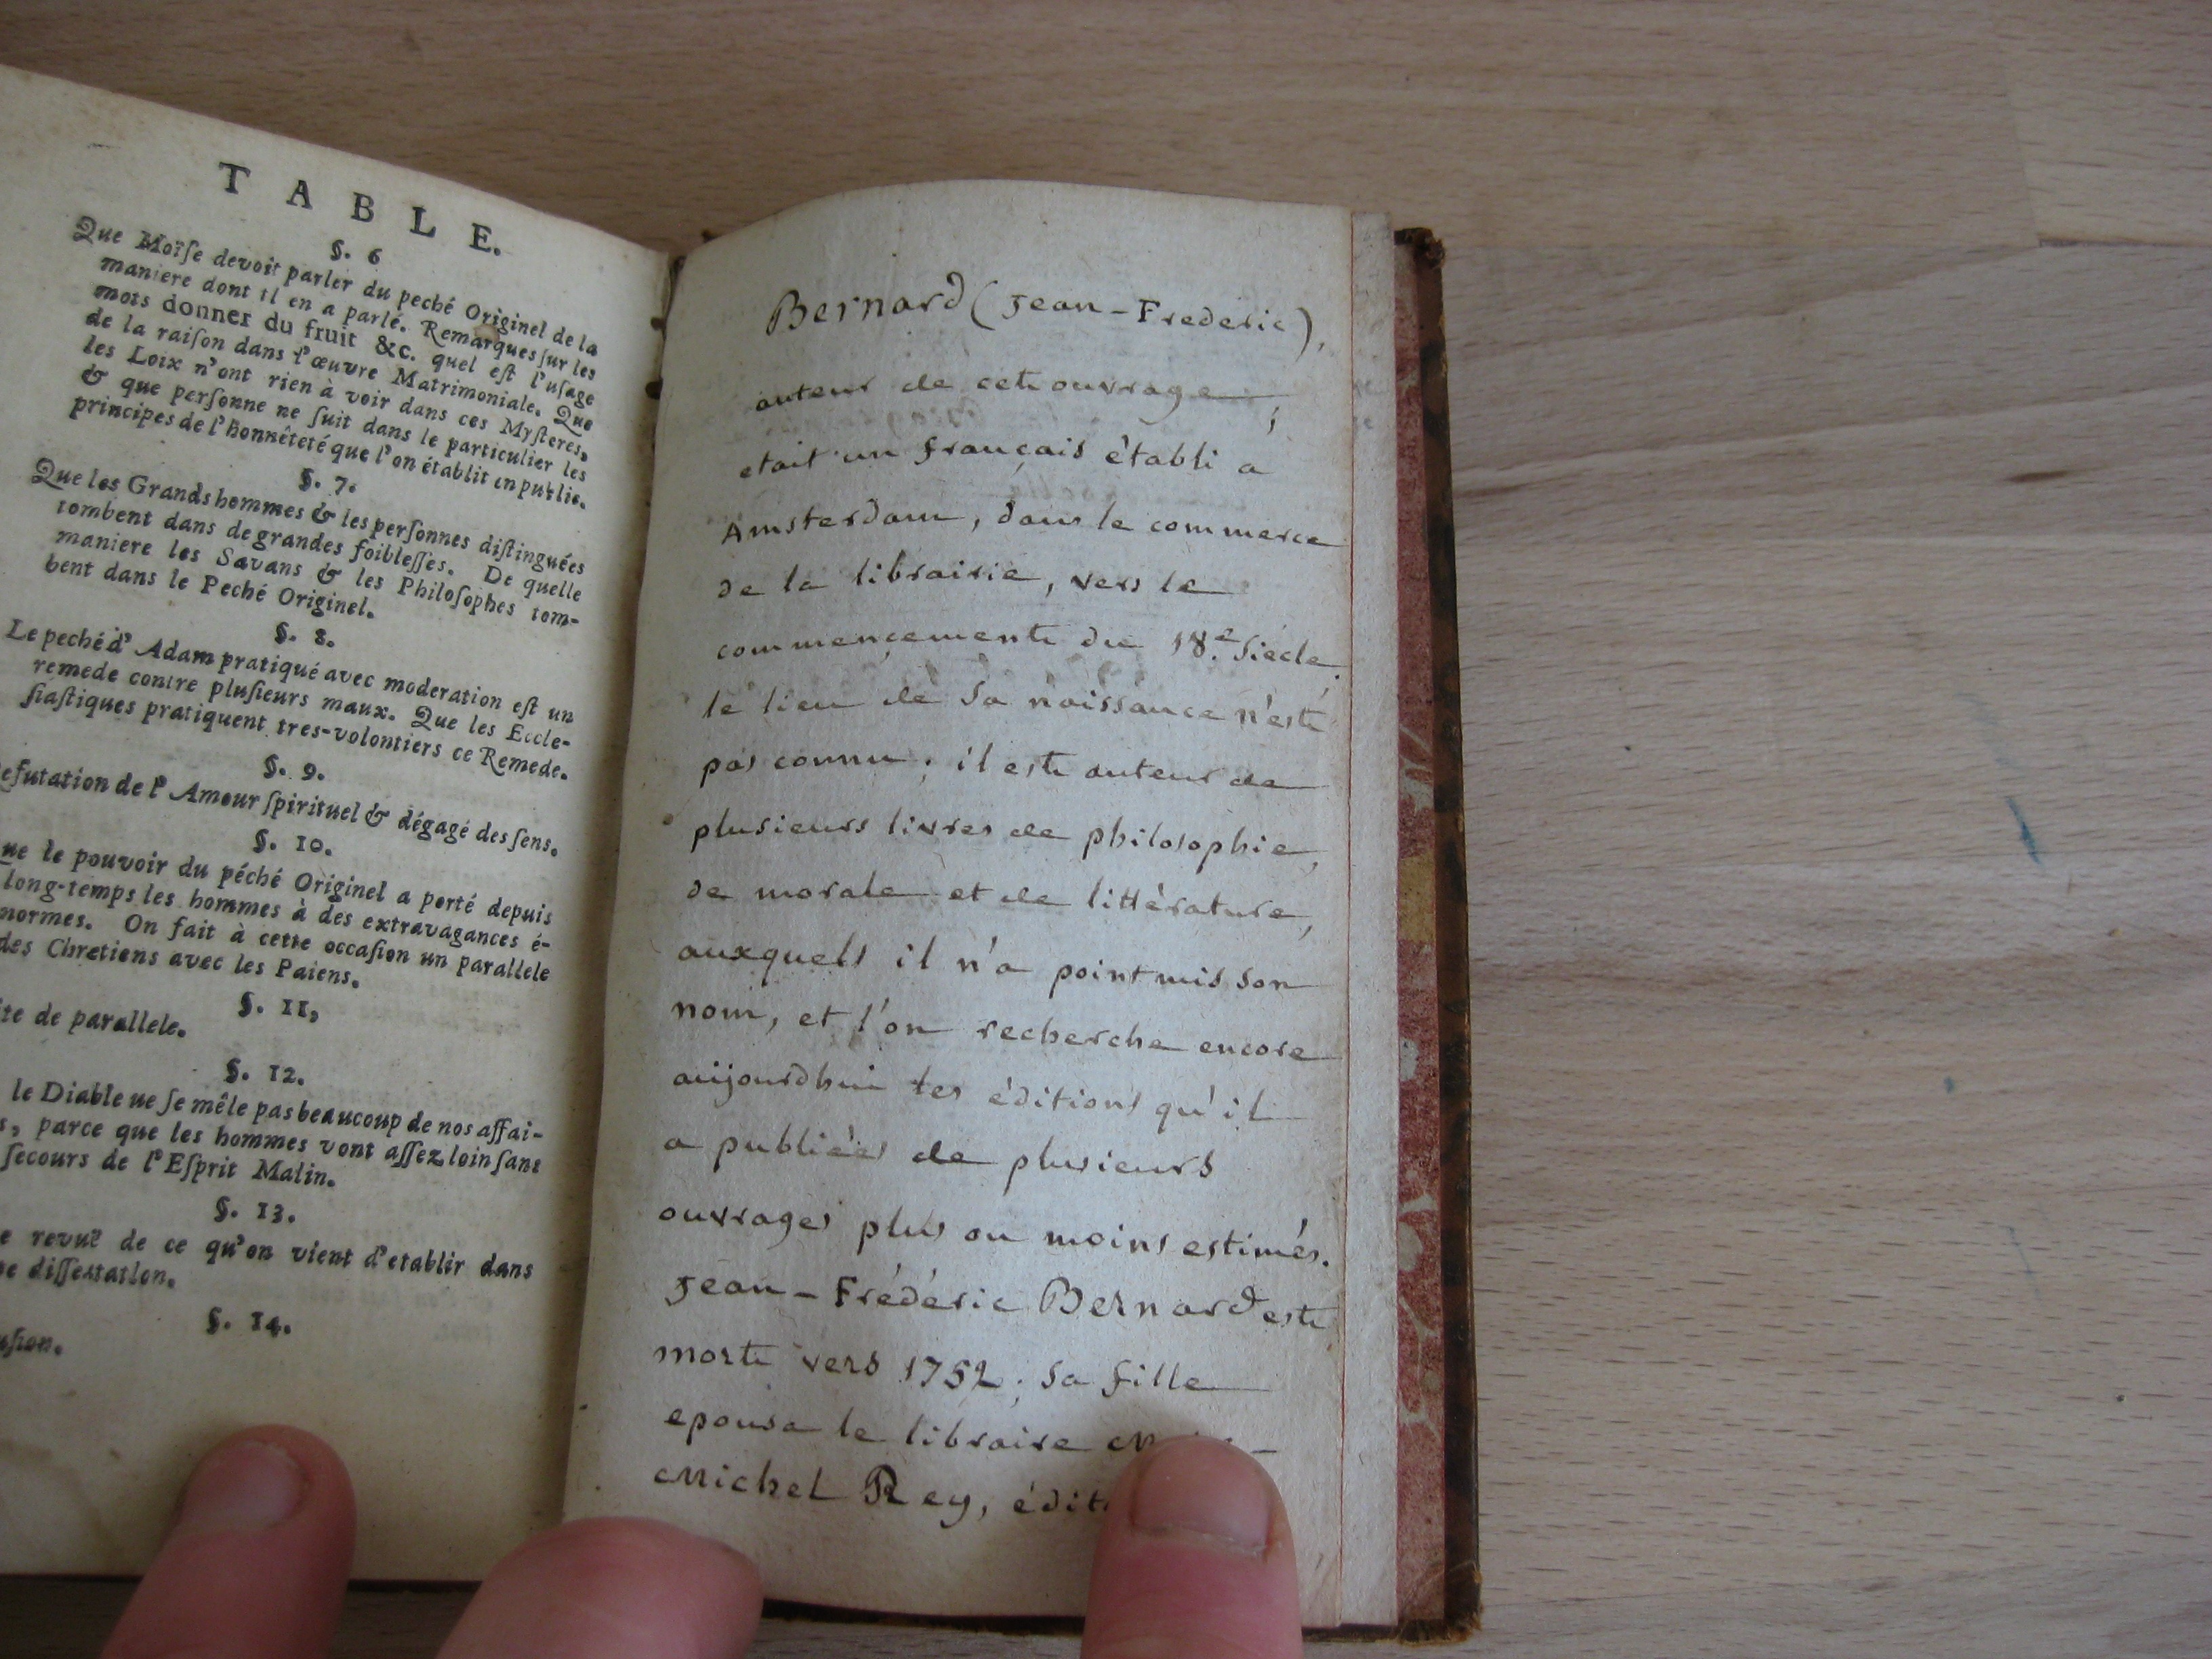 TABLE.
§. 6
Que Moïſe devoit parler du peché Originel de la
maniere dont il en a parlé. Remarques ſur les
mots donnez du fruit &c. quel eſt l'uſage
de la raiſon dans l'œuvre Matrimoniale. Que
les Loix n'ont rien à voir dans ces Myſteres,
& que perſonne ne ſuit dans le particulier les
principes de l'honnêteté que l'on établit en public.
§. 7.
Que les Grands hommes & les perſonnes diſtinguées
tombent dans de grandes foibleſſes. De quelle
maniere les Savans & les Philoſophes tom-
bent dans le Peché Originel.
§. 8.
Le peché d'Adam pratiqué avec moderation eſt un
remede contre pluſieurs maux. Que les Eccle-
ſiaſtiques pratiquent tres-volontiers ce Remede.
§. 9.
efutation de l'Amour ſpirituel & dégagé des ſens.
§. 10.
ue le pouvoir du péché Originel a porté depuis
long-temps les hommes à des extravagances é-
normes. On fait à cette occaſion un parallele
des Chretiens avec les Paiens.
§. 11,
te de parallele.
§. 12.
le Diable ne ſe mêle pas beaucoup de nos affai-
s, parce que les hommes vont aſſez loin ſans
ſecours de l'Eſprit Malin.
§. 13.
e revuë de ce qu'on vient d'etablir dans
e diſſertation.
§. 14.
uſion.
Bernard (Jean-Frederic),
auteur de cet ouvrage,
etait un français établi a
Amsterdam, dans le commerce
de la librairie, vers le
commençement du 18.e Siécle.
le lieu de Sa naissance n'est
pas connu; il est auteur de
plusieurs livres de philosophie,
de morale et de littérature,
auxquels il n'a point mis son
nom, et l'on recherche encore
aujourdhui les éditions qu'il
a publiées de plusieurs
ouvrages plus ou moins estimés.
Jean-Frédéric Bernard est
mort vers 1752; Sa fille
epousa le libraire
Michel Rey, édit